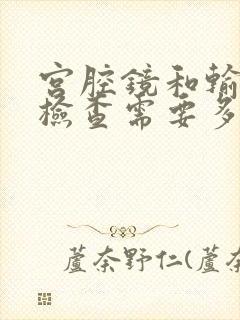 宫腔鏡和輸
檢查需要多
蘆奈野仁(蘆奈